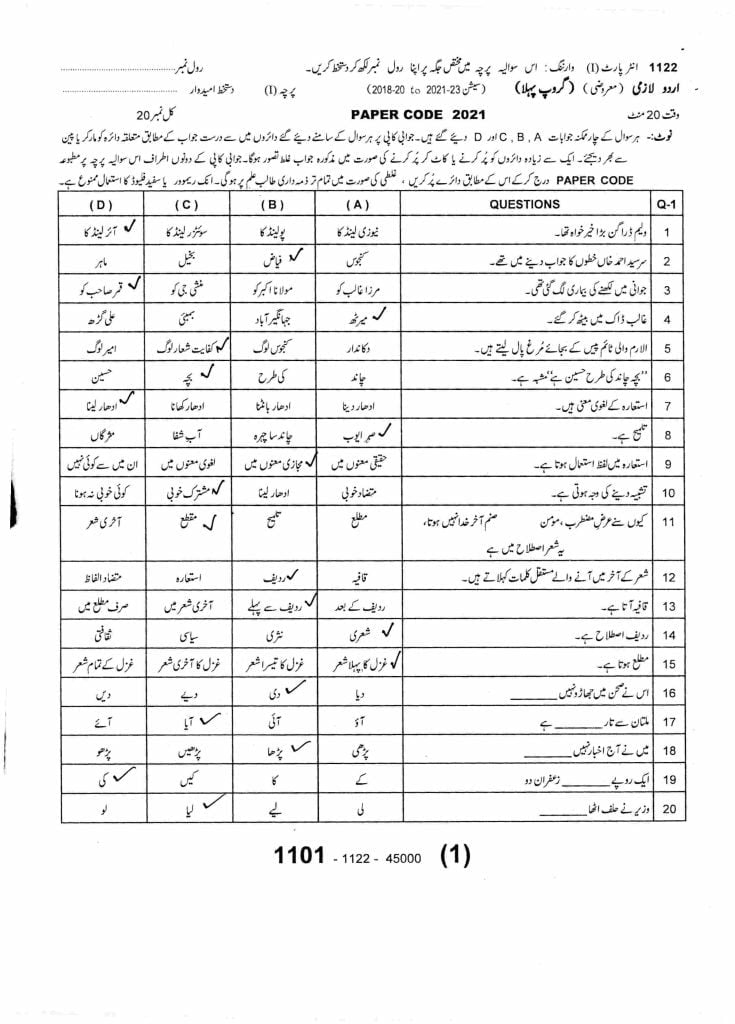 1122 انٹر پارٹ (I) وارننگ: اس سوالیہ پرچہ میں مختص جگہ پر اپنا رول نمبر لکھ کر دستخط کریں۔ رول نمبر
اردو لازمی (معروضی) (گروپ پہلا) (سیشن 23-2021 to 20-2018) پرچہ (I) دستخط امیدوار
وقت 20 منٹ PAPER CODE 2021 کل نمبر 20
نوٹ:۔ ہر سوال کے چار ممکنہ جوابات A ,B ,C اور D دیئے گئے ہیں۔ جوابی کاپی پر ہر سوال کے سامنے دیئے گئے دائروں میں سے درست جواب کے مطابق متعلقہ دائرہ کو مارکر یا پین
سے بھر دیجئے۔ ایک سے زیادہ دائروں کو پُر کرنے یا کاٹ کر پُر کرنے کی صورت میں مذکورہ جواب غلط تصور ہوگا۔ جوابی کاپی کے دونوں اطراف اس سوالیہ پرچہ پر مطبوعہ
PAPER CODE درج کر کے اس کے مطابق دائرے پُر کریں ، غلطی کی صورت میں تمام تر ذمہ داری طالب علم پر ہوگی۔ انک ریموور یا سفید فلیوڈ کا استعمال ممنوع ہے۔
Q-1 QUESTIONS (A) (B) (C) (D)
1 ولیم ڈراگن بڑا خیر خواہ تھا۔ نیوزی لینڈ کا پولینڈ کا سوئٹزر لینڈ کا آئر لینڈ کا
2 سر سید احمد خاں خطوں کا جواب دینے میں تھے۔ کنجوس فیاض بخیل ماہر
3 جوانی میں لکھنے کی بیماری لگ گئی تھی۔ مرزا غالب کو مولانا اکبر کو منشی جی کو قمر صاحب کو
4 غالب ڈاک میں بیٹھ کر گئے۔ میرٹھ جہانگیر آباد بمبئی علی گڑھ
5 الارم والی ٹائم پیس کے بجائے مُرغ پال لیتے ہیں۔ دکاندار کنجوس لوگ کفایت شعار لوگ امیر لوگ
6 "بچہ چاند کی طرح حسین ہے" مشبہ ہے۔ چاند کی طرح بچہ حسین
7 استعارہ کے لغوی معنی ہیں۔ ادھار دینا ادھار بانٹنا ادھار کھانا ادھار لینا
8 تلمیح ہے۔ صبر ایوب چاند سا چہرہ آبِ شفا مژگاں
9 استعارہ میں لفظ استعمال ہوتا ہے۔ حقیقی معنوں میں مجازی معنوں میں لغوی معنوں میں ان میں سے کوئی نہیں
10 تشبیہ دینے کی وجہ ہوتی ہے۔ متضاد خوبی ادھار لینا مشترک خوبی کوئی خوبی نہ ہونا
11 کیوں سنے عرضِ مضطرب، مومن صنم آخر خدا نہیں ہوتا، مطلع تلمیح مقطع آخری شعر
یہ شعر اصطلاح میں ہے
12 شعر کے آخر میں آنے والے مستقل کلمات کہلاتے ہیں۔ قافیہ ردیف استعارہ متضاد الفاظ
13 قافیہ آتا ہے۔ ردیف کے بعد ردیف سے پہلے آخری شعر میں صرف مطلع میں
14 ردیف اصطلاح ہے۔ شعری نثری سیاسی ثقافتی
15 مطلع ہوتا ہے۔ غزل کا پہلا شعر غزل کا تیسرا شعر غزل کا آخری شعر غزل کے تمام شعر
16 اس نے صحن میں جھاڑو نہیں ________ دیا دی دیے دیں
17 ملتان سے تار ________ ہے آؤ آئی آیا آئے
18 میں نے آج اخبار نہیں ________ پڑھی پڑھا پڑھیں پڑھو
19 ایک روپے ________ زعفران دو کے کا کیں کی
20 وزیر نے حلف اٹھا ________ لی لیے لیا لو
1101 - 1122 - 45000 (1)